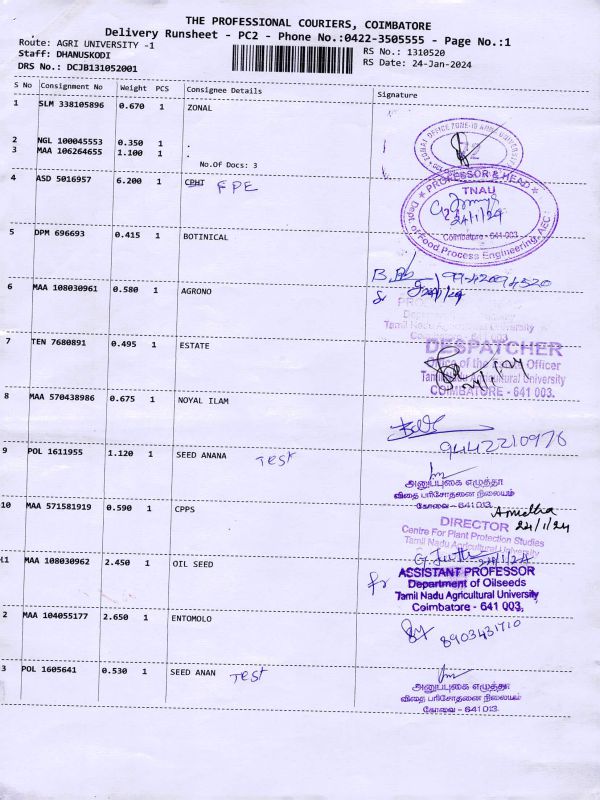 THE PROFESSIONAL COURIERS, COIMBATORE
Delivery Runsheet - PC2 - Phone No.:0422-3505555 - Page No.:1
Route: AGRI UNIVERSITY -1
Staff: DHANUSKODI
DRS No.: DCJB131052001
RS No.: 1310520
RS Date: 24-Jan-2024
S No Consignment No Weight PCS Consignee Details Signature
1 SLM 338105896 0.670 1 ZONAL
2 NGL 100045553 0.350 1 .
3 MAA 106264655 1.100 1 .
No.Of Docs: 3
4 ASD 5016957 6.200 1 CPHT FPE
PROFESSOR & HEAD
TNAU
24/1/24
Coimbatore - 641 003
Dept. of Food Process Engineering, AEC
5 DPM 696693 0.415 1 BOTINICAL
6 MAA 108030961 0.580 1 AGRONO
Tamil Nadu Agricultural University
7 TEN 7680891 0.495 1 ESTATE
DESPATCHER
Office of the Estate Officer
Tamil Nadu Agricultural University
COIMBATORE - 641 003.
8 MAA 570438986 0.675 1 NOYAL ILAM
9442210976
9 POL 1611955 1.120 1 SEED ANANA Test
அனுப்புகை எழுத்தர்
விதை பரிசோதனை நிலையம்
கோவை - 641 013.
10 MAA 571581919 0.590 1 CPPS
Amutha
24/1/24
DIRECTOR
Centre For Plant Protection Studies
Tamil Nadu Agricultural University
11 MAA 108030962 2.450 1 OIL SEED
ASSISTANT PROFESSOR
Department of Oilseeds
Tamil Nadu Agricultural University
Coimbatore - 641 003.
2 MAA 104055177 2.650 1 ENTOMOLO
8903431710
3 POL 1605641 0.530 1 SEED ANAN Test
அனுப்புகை எழுத்தர்
விதை பரிசோதனை நிலையம்
கோவை - 641 013.